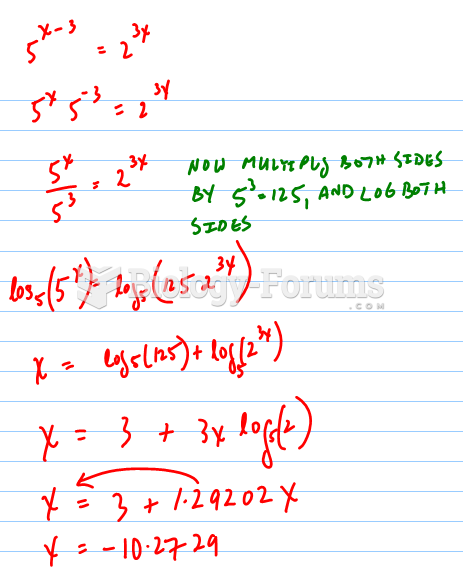 5^(x-3) = 2^(3x)
5^x 5^(-3) = 2^(3x)
5^x / 5^3 = 2^(3x)
NOW MULTIPLY BOTH SIDES
BY 5^3=125, AND LOG BOTH
SIDES
Biology-Forums
.COM
log_5(5^x) = log_5(125·2^(3x))
x = log_5(125) + log_5(2^(3x))
x = 3 + 3x log_5(2)
x = 3 + 1.29202 x
x = -10.2729